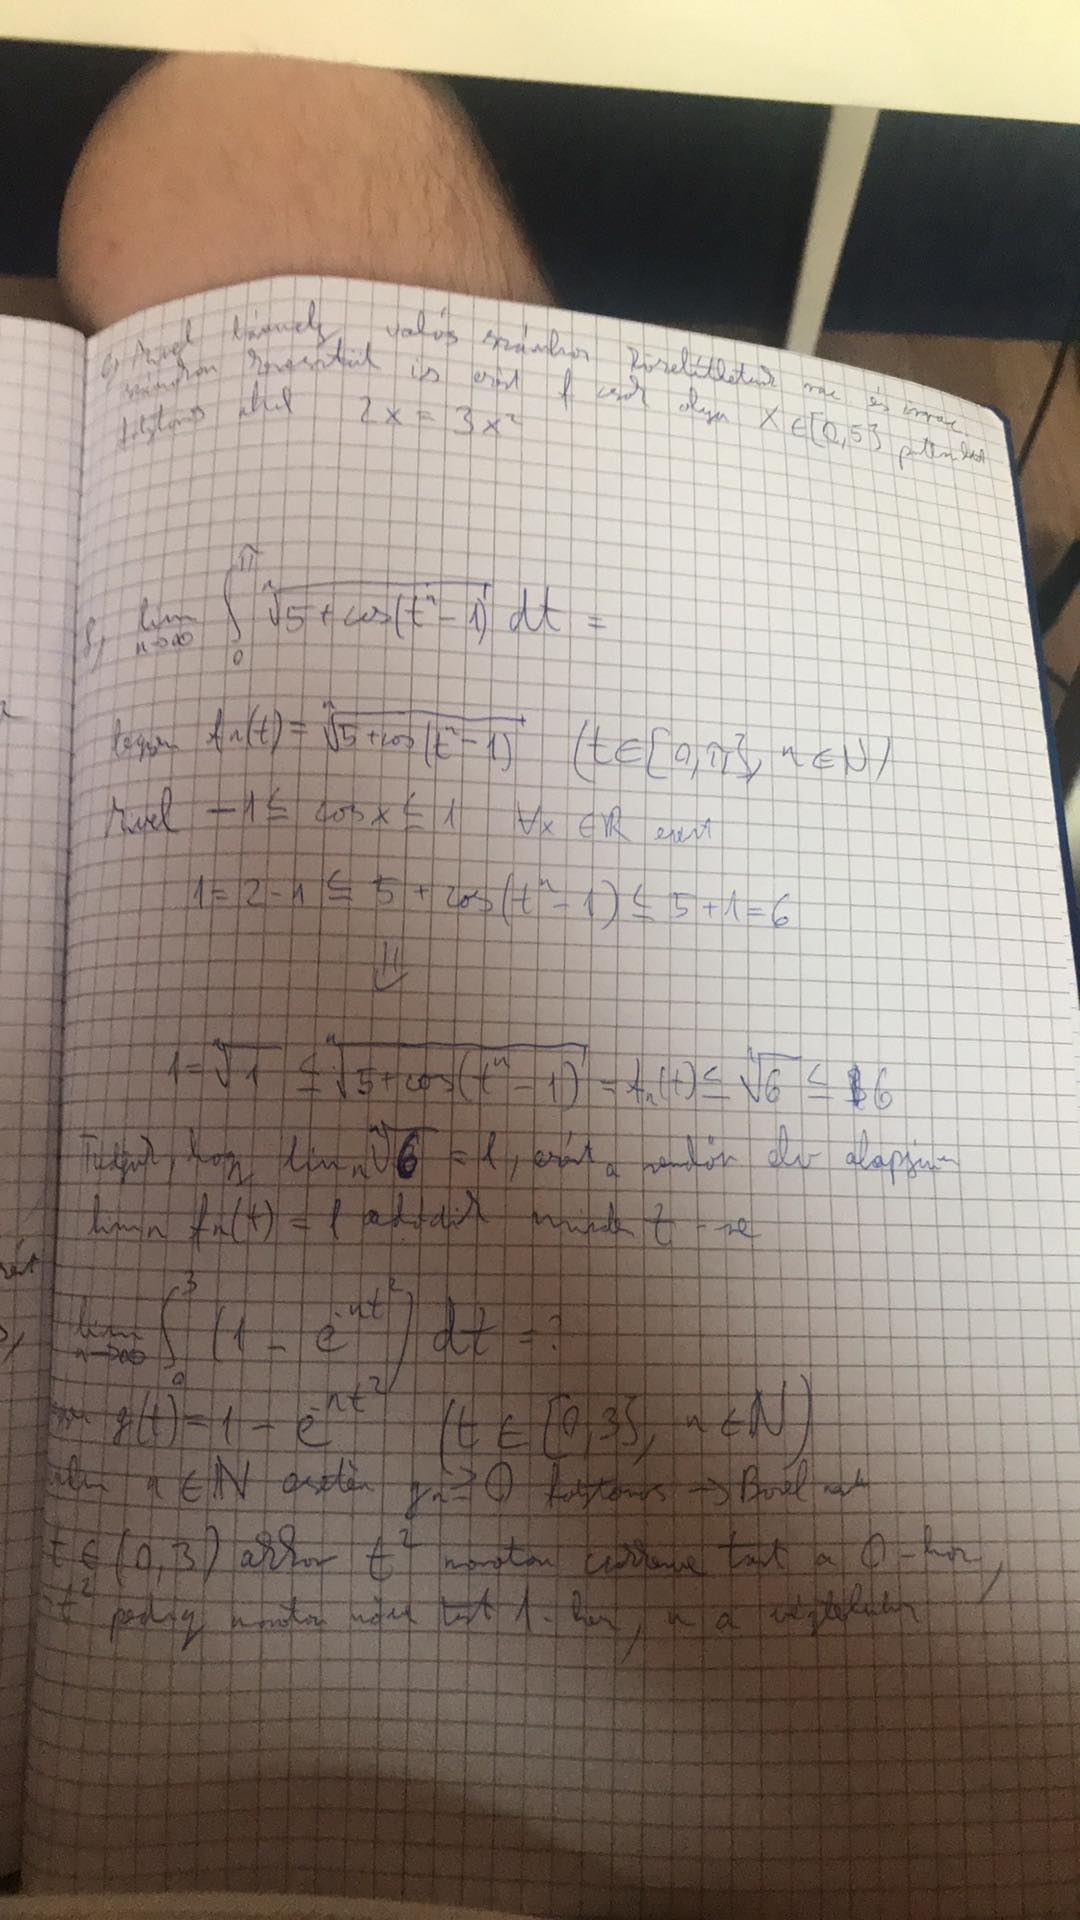 valós számhoz
számhoz is ezért 1 olyan x ∈ [0,5]
folytonos ahol 2x = 3x²
8, lim n→∞ ∫₀^π ⁿ√(5+cos(tⁿ-1)) dt =
legyen fn(t) = ⁿ√(5+cos(tⁿ-1)) (t∈[0,π], n∈N)
Mivel -1 ≤ cos x ≤ 1 ∀x ∈ℝ ezért
1=2-1 ≤ 5 + cos(tⁿ-1) ≤ 5+1=6
⇓
1=ⁿ√1 ≤ ⁿ√(5+cos(tⁿ-1)) = fn(t) ≤ ⁿ√6 ≤ 6
Tudjuk, hogy limn ⁿ√6 = 1, ezért a rendőr elv alapján
limn fn(t) = 1 adódik minden t-re
lim n→∞ ∫₀³ (1 - e^-nt²) dt = ?
g(t) = 1 - e^-nt² (t ∈ [0,3], n ∈ N)
n ∈ N esetén gn ≥ 0 folytonos → Borel
t ∈ (0,3) akkor t² monoton tart a 0-hoz,
t² pedig monoton tart 1-hez, n a végtelenbe